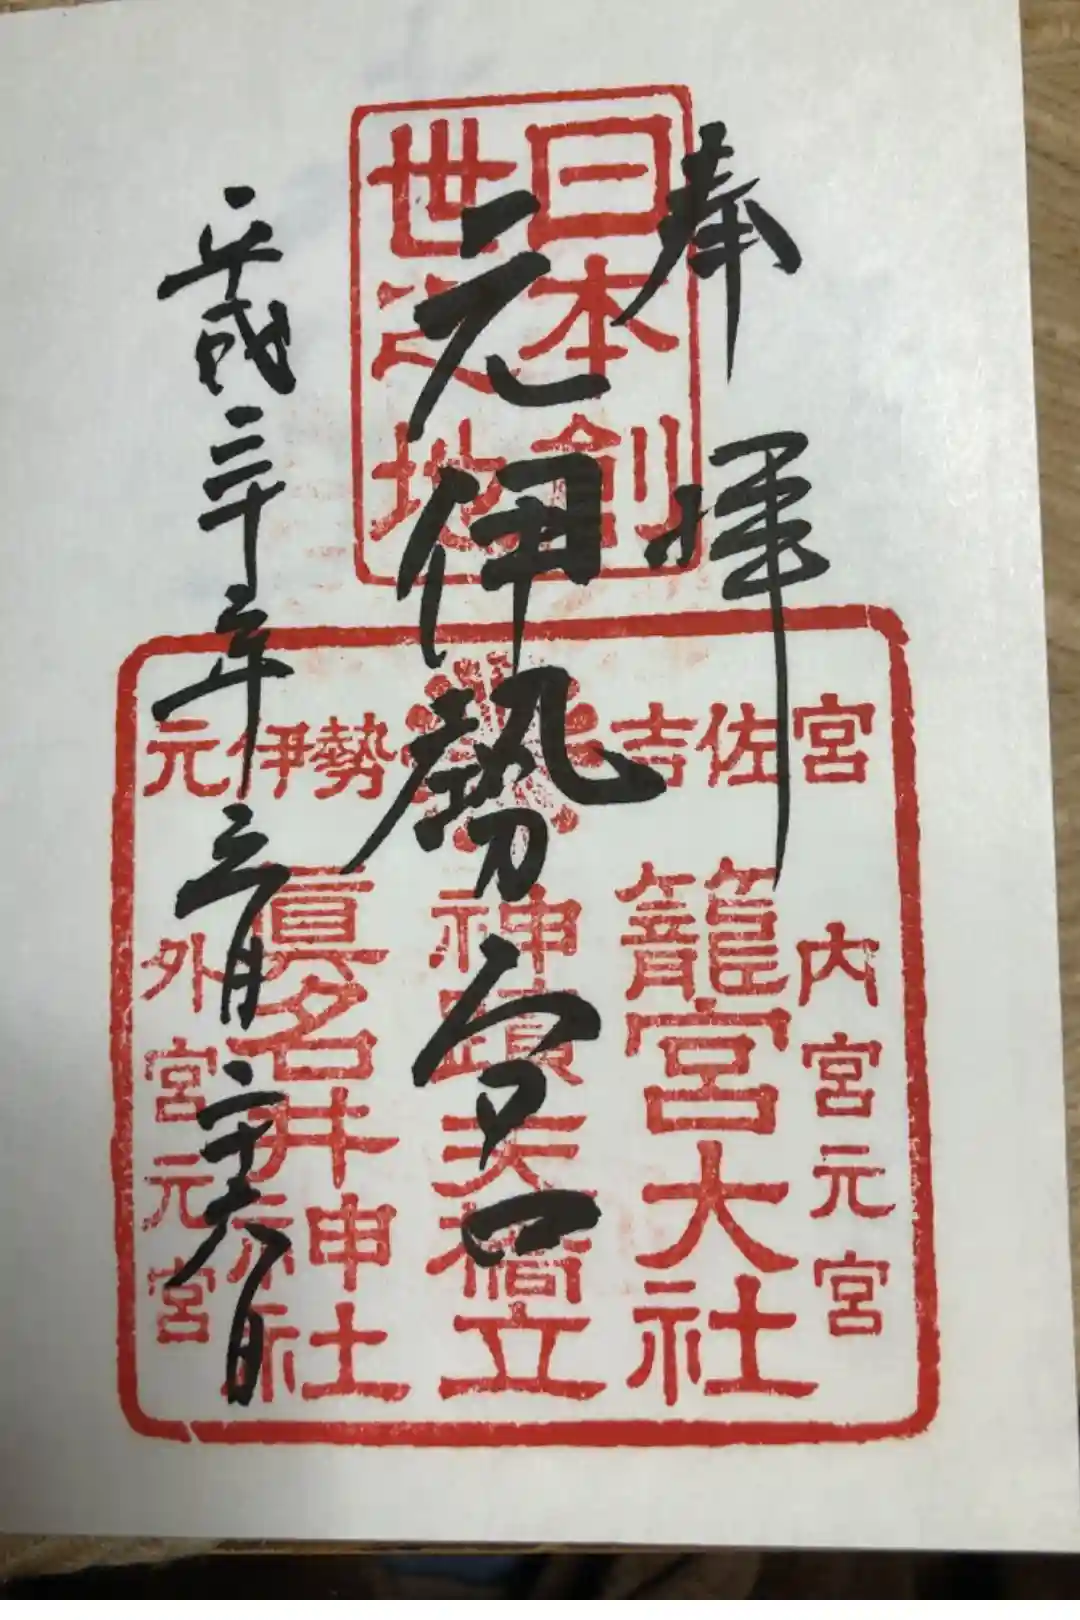 奉拝
日本創
世之地
元伊勢
平成三十年三月二十八日
元伊勢 吉佐宮
内宮元宮
籠宮大社
神蹟天橋立
眞名井神社
外宮元宮